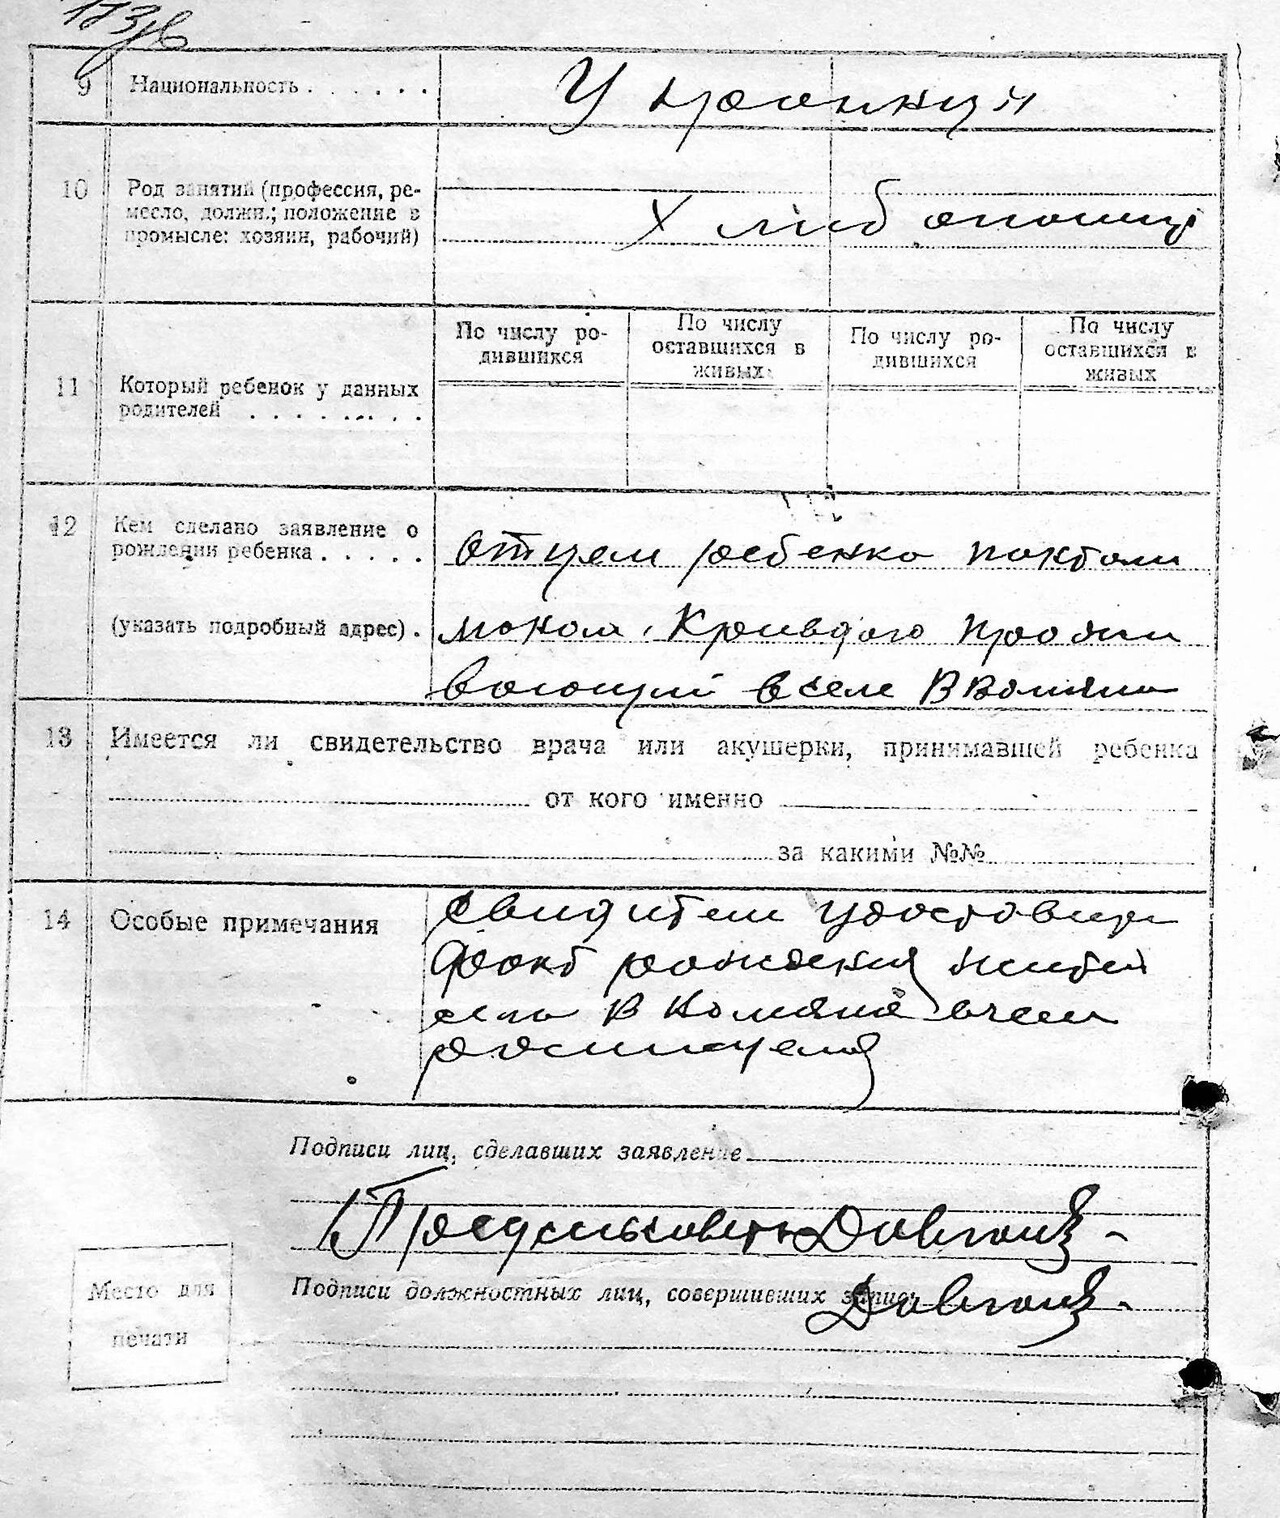 173 зв
9 Национальность . . . . . .
Украинци
10 Род занятий (профессия, ре-
месло, должн.; положение в
промысле: хозяин, рабочий)
Хлибопошци
11 Который ребенок у данных
родителей . . . . . . . .
По числу ро-
дившихся
По числу
оставшихся в
живых
По числу ро-
дившихся
По числу
оставшихся в
живых
12 Кем сделано заявление о
рождении ребенка . . . . .
(указать подробный адрес) .
Отцем ребенка
Кривдою прожи
вающий в селе
13 Имеется ли свидетельство врача или акушерки, принимавшей ребенка
от кого именно
за какими №№
14 Особые примечания
Свидители удостовири
факт рождения жители
села В в чем
росписуемся
Подписи лиц, сделавших заявление
Предсильсовета Довгань
Подписи должностных лиц, совершивших запись
Довгань
Место для
печати